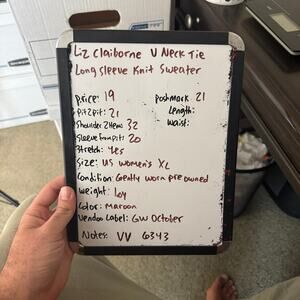 Liz Claiborne V Neck Tie
Long Sleeve Knit Sweater
Price: 19
Poshmark 21
Pit2Pit: 21
Length:
Shoulder2Hem: 32
Waist:
Sleeve from pit: 20
Stretch: Yes
Size: US Women's XL
Condition: Gently worn preowned
Weight: 1oy
Color: Maroon
Vendoo Label: GW October
Notes: VV 6343